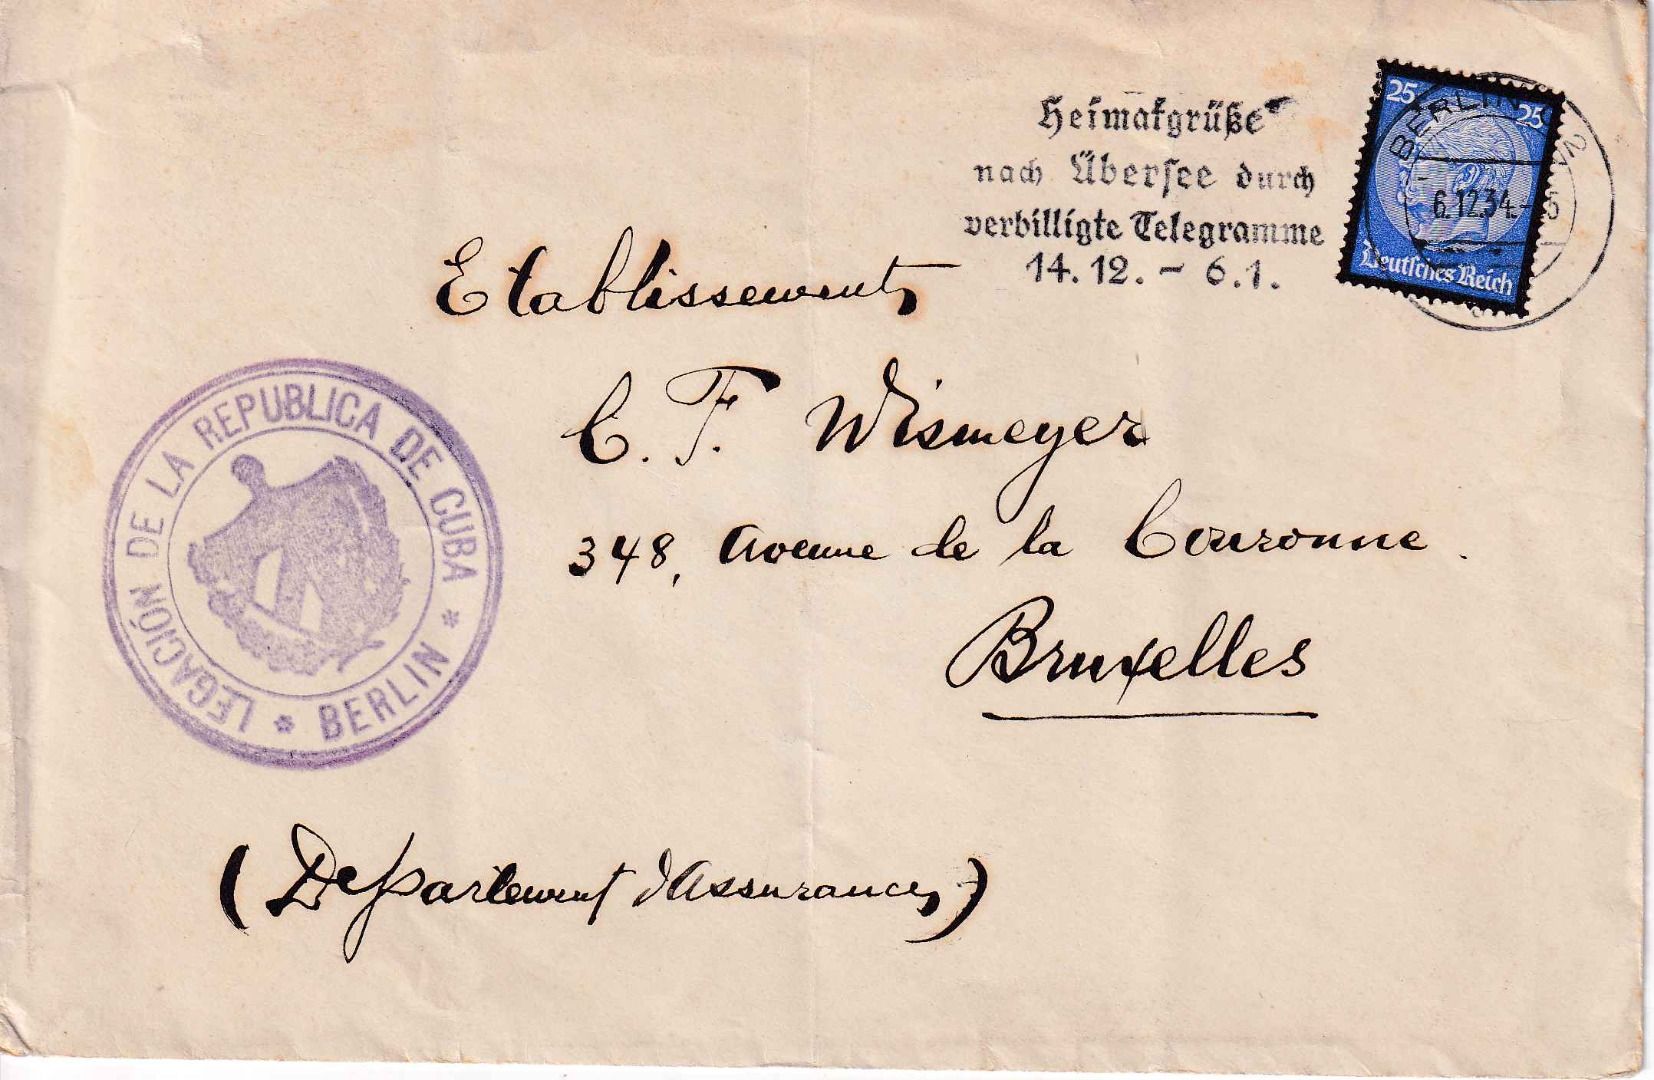 Heimatgrüße
nach Übersee durch
verbilligte Telegramme
14. 12. - 6. 1.
25 25
Deutsches Reich
BERLIN
6.12.34.
Etablissements
C. F. Wismeyer
348, Avenue de la Couronne.
Bruxelles
LEGACIÓN DE LA REPUBLICA DE CUBA * BERLIN *
(Departement d'Assurances)